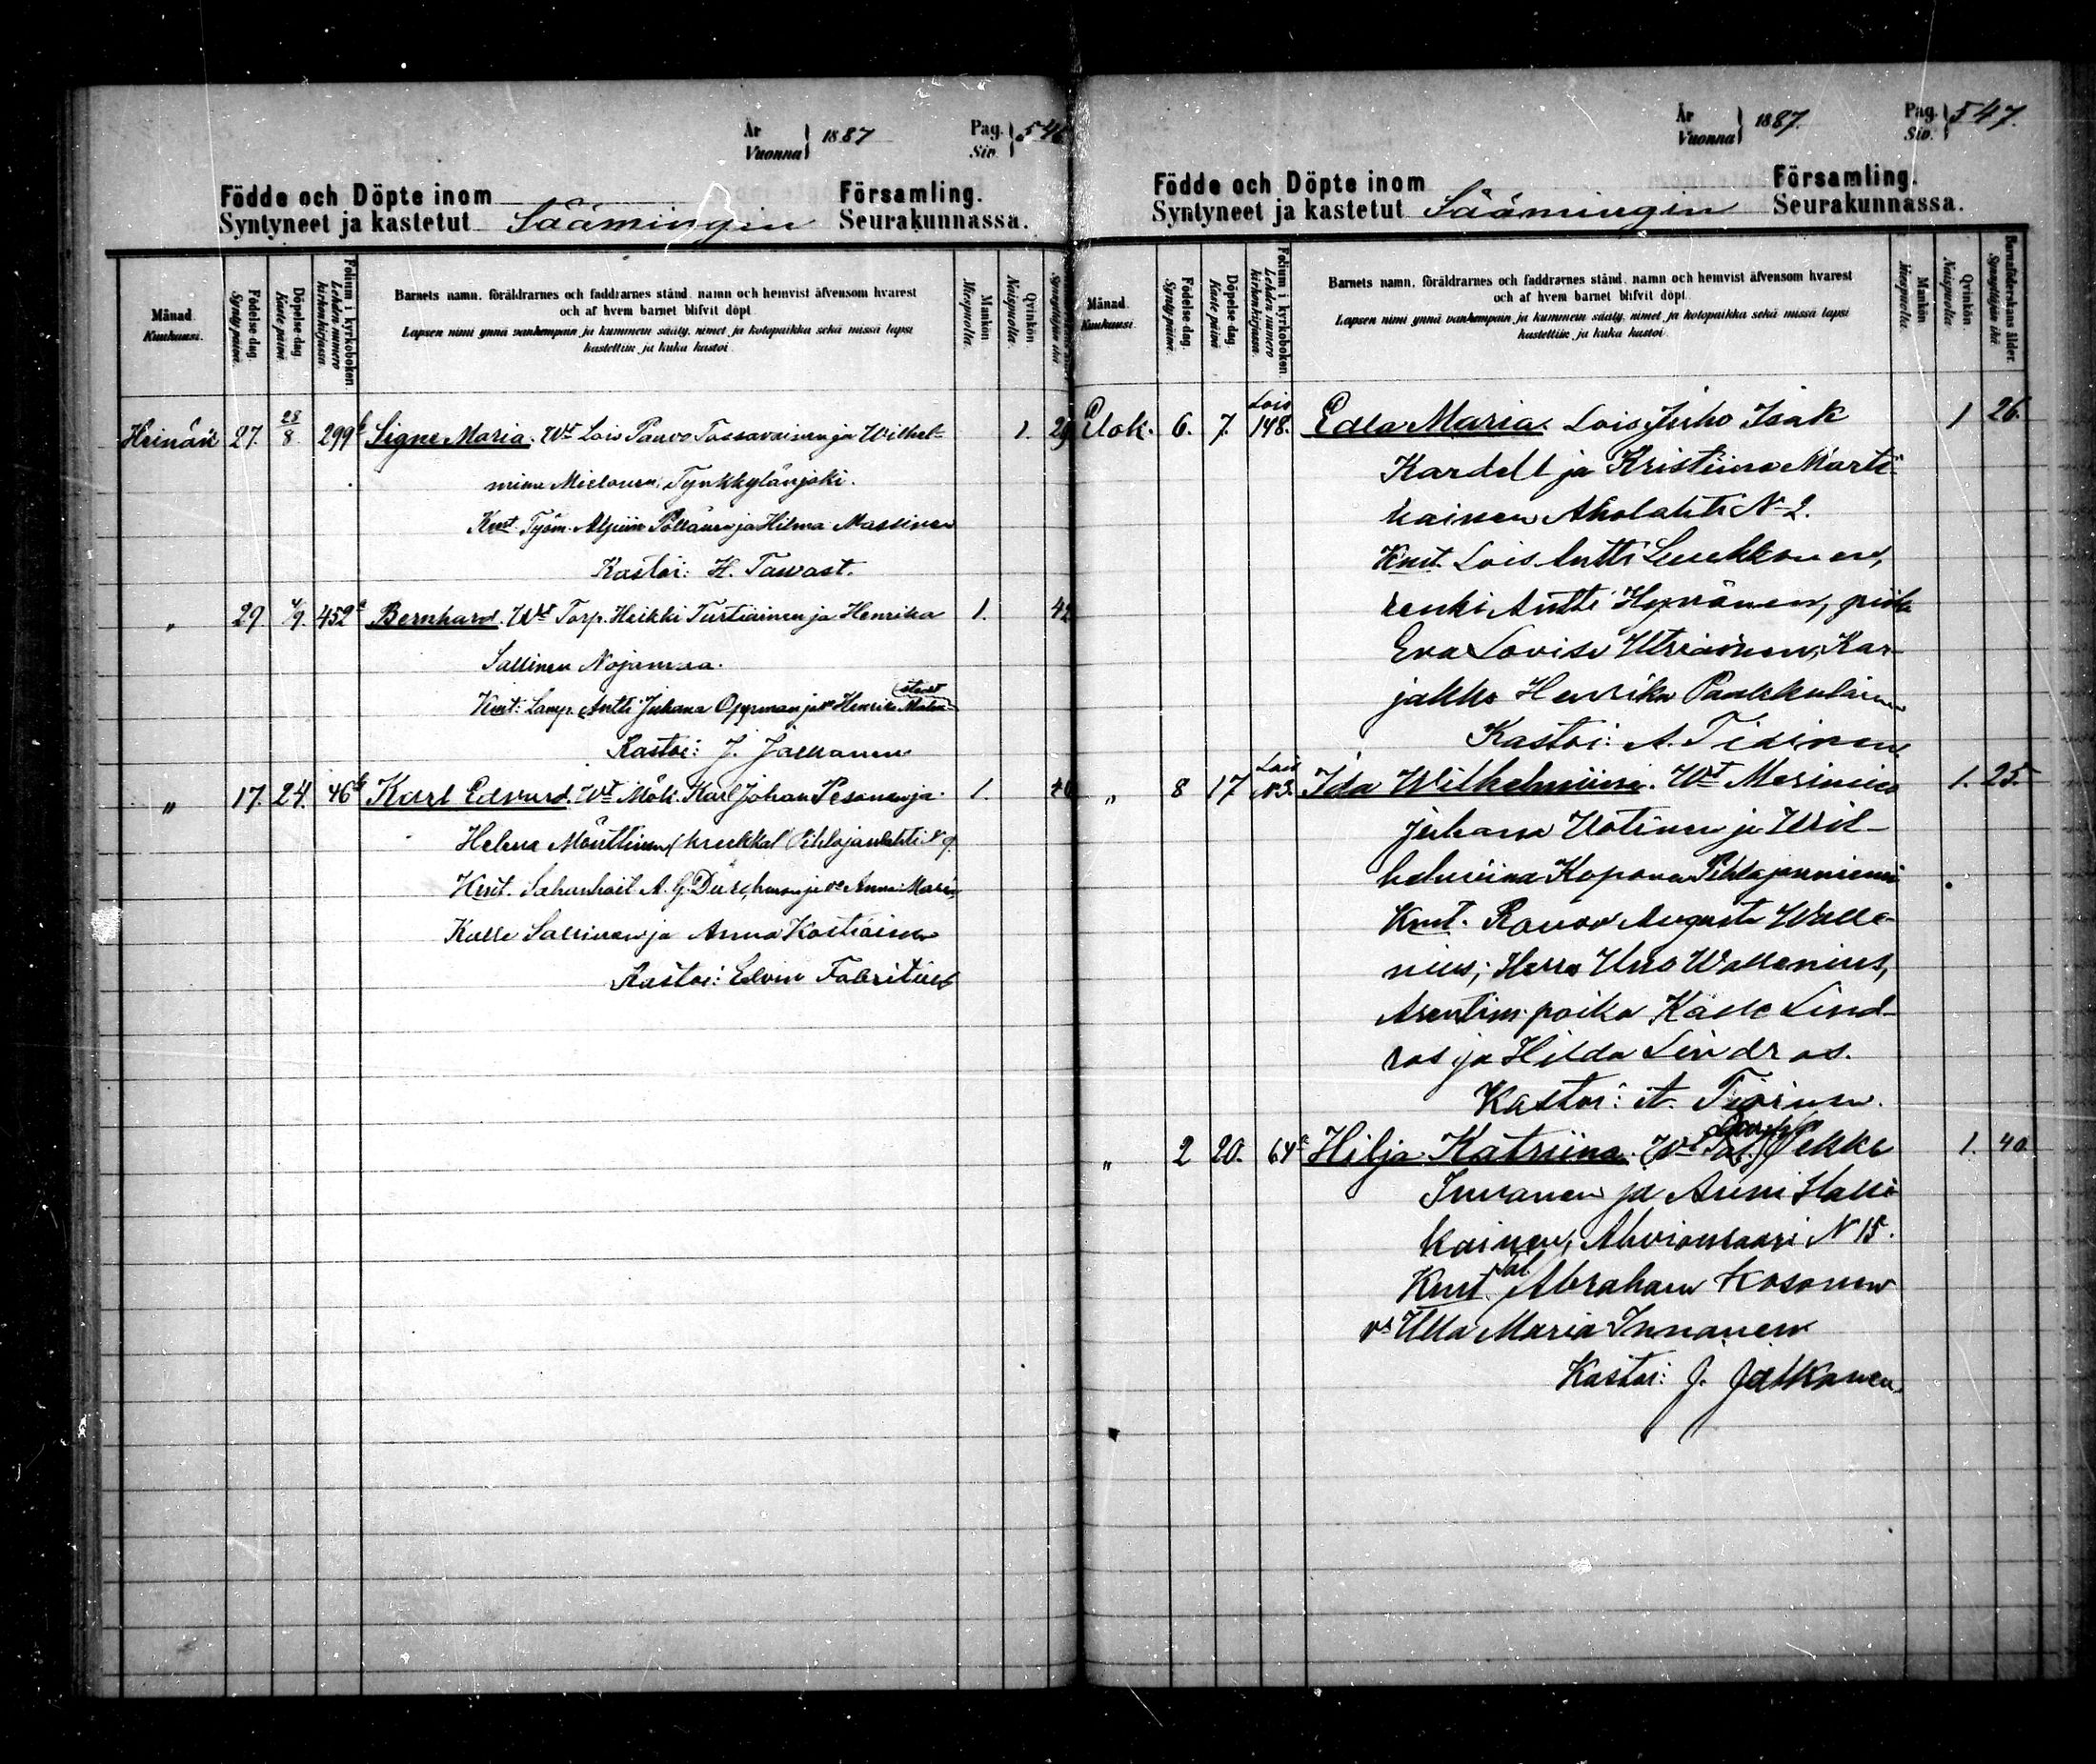 År
Vuonna } 1887
Pag.
Siv. } 546
Födde och Döpte inom Församling.
Syntyneet ja kastetut Säämingin Seurakunnassa.
Månad. Kuukausi.
Födelse-dag. Synty päivä.
Döpelse-dag. Kaste päivä
Folium i kyrkoboken. Lehden numero kirkonkirjassa.
Barnets namn, föräldrarnes och faddrarnes stånd, namn och hemvist äfvensom hvarest
och af hvem barnet blifvit döpt.
Lapsen nimi ynnä vanhempain ja kummein sääty, nimet ja kotopaikka sekä missä lapsi
kastettiin ja kuka kastoi.
Mankön Miespuolia.
Qvinkön. Naispuolia.
Heinäk 27. 28/8. 299 Signe Maria. Wt Lois Paavo Tossavainen ja Wilhel- 1. 29
mina Tynkkylänjoki.
Kmt. Työm. Alpiin Pöllänen ja Hilma Massinen
Kastoi: H. Tawast.
" 29 4/9. 452 Bernhard. Wt Torp. Heikki Turtiainen ja Henrika 1. 42
Sallinen Nojanmaa.
Kmt: Lamp. Antti Juhana Opprman ja Henrika
Kastoi: J. Jalkanen
" 17. 24. 46 Karl Edvard. Wt Mök. Karl Johan Pesonen ja 1. 40
Helena Mönttinen Pihlajanlahti N 9.
Kmt. A. G. ja Anna Maria,
Kalle Sallinen ja Anna Kostiainen
Kastoi: Edvin Fabritius
År
Vuonna } 1887.
Pag.
Siv. } 547.
Födde och Döpte inom Församling.
Syntyneet ja kastetut Säämingin Seurakunnassa.
Månad. Kuukausi.
Födelse-dag. Synty päivä.
Döpelse-dag. Kaste päivä
Folium i kyrkoboken. Lehden numero kirkonkirjassa.
Barnets namn, föräldrarnes och faddrarnes stånd, namn och hemvist äfvensom hvarest
och af hvem barnet blifvit döpt.
Lapsen nimi ynnä vanhempain ja kummein sääty, nimet ja kotopaikka sekä missä lapsi
kastettiin ja kuka kastoi.
Mankön Miespuolia.
Qvinkön. Naispuolia
Barnaföderskans ålder. Synnyttäjän ikä.
Elok. 6. 7. Lois 148. Edla Maria. Lois Juho Isak 1 26.
Kardell ja Kristiina Marti-
kainen Aholahti N 2.
Kmt. Lois Antti Leukkonen,
renki Antti Hyvönen, piika
Eva Lovisa Utriainen, Kar-
jakko Henrika Paakkulainen
Kastoi: A. Tiainen.
" 8 17 Lois N 3. Ida Wilhelmiina. Wt Merimies 1. 25.
Juhana Uotinen ja Wil-
helmiina Koponen Pihlajaniemi
Kmt. Rouva Augusta Walle-
nius; Herra Uno Wallenius,
Arentim. poika Kalle Lind-
ros ja Hilda Lindros.
Kastoi: A. Tiainen.
" 2 20. 64 Hilja Katriina. Wt Pekka 1. 40
Innanen ja Anni Halli-
kainen, Ahvionsaari N 15.
Kmt. tal. Abraham Kosonen
vo Ulla Maria Innanen
Kastoi: J. Jalkanen.